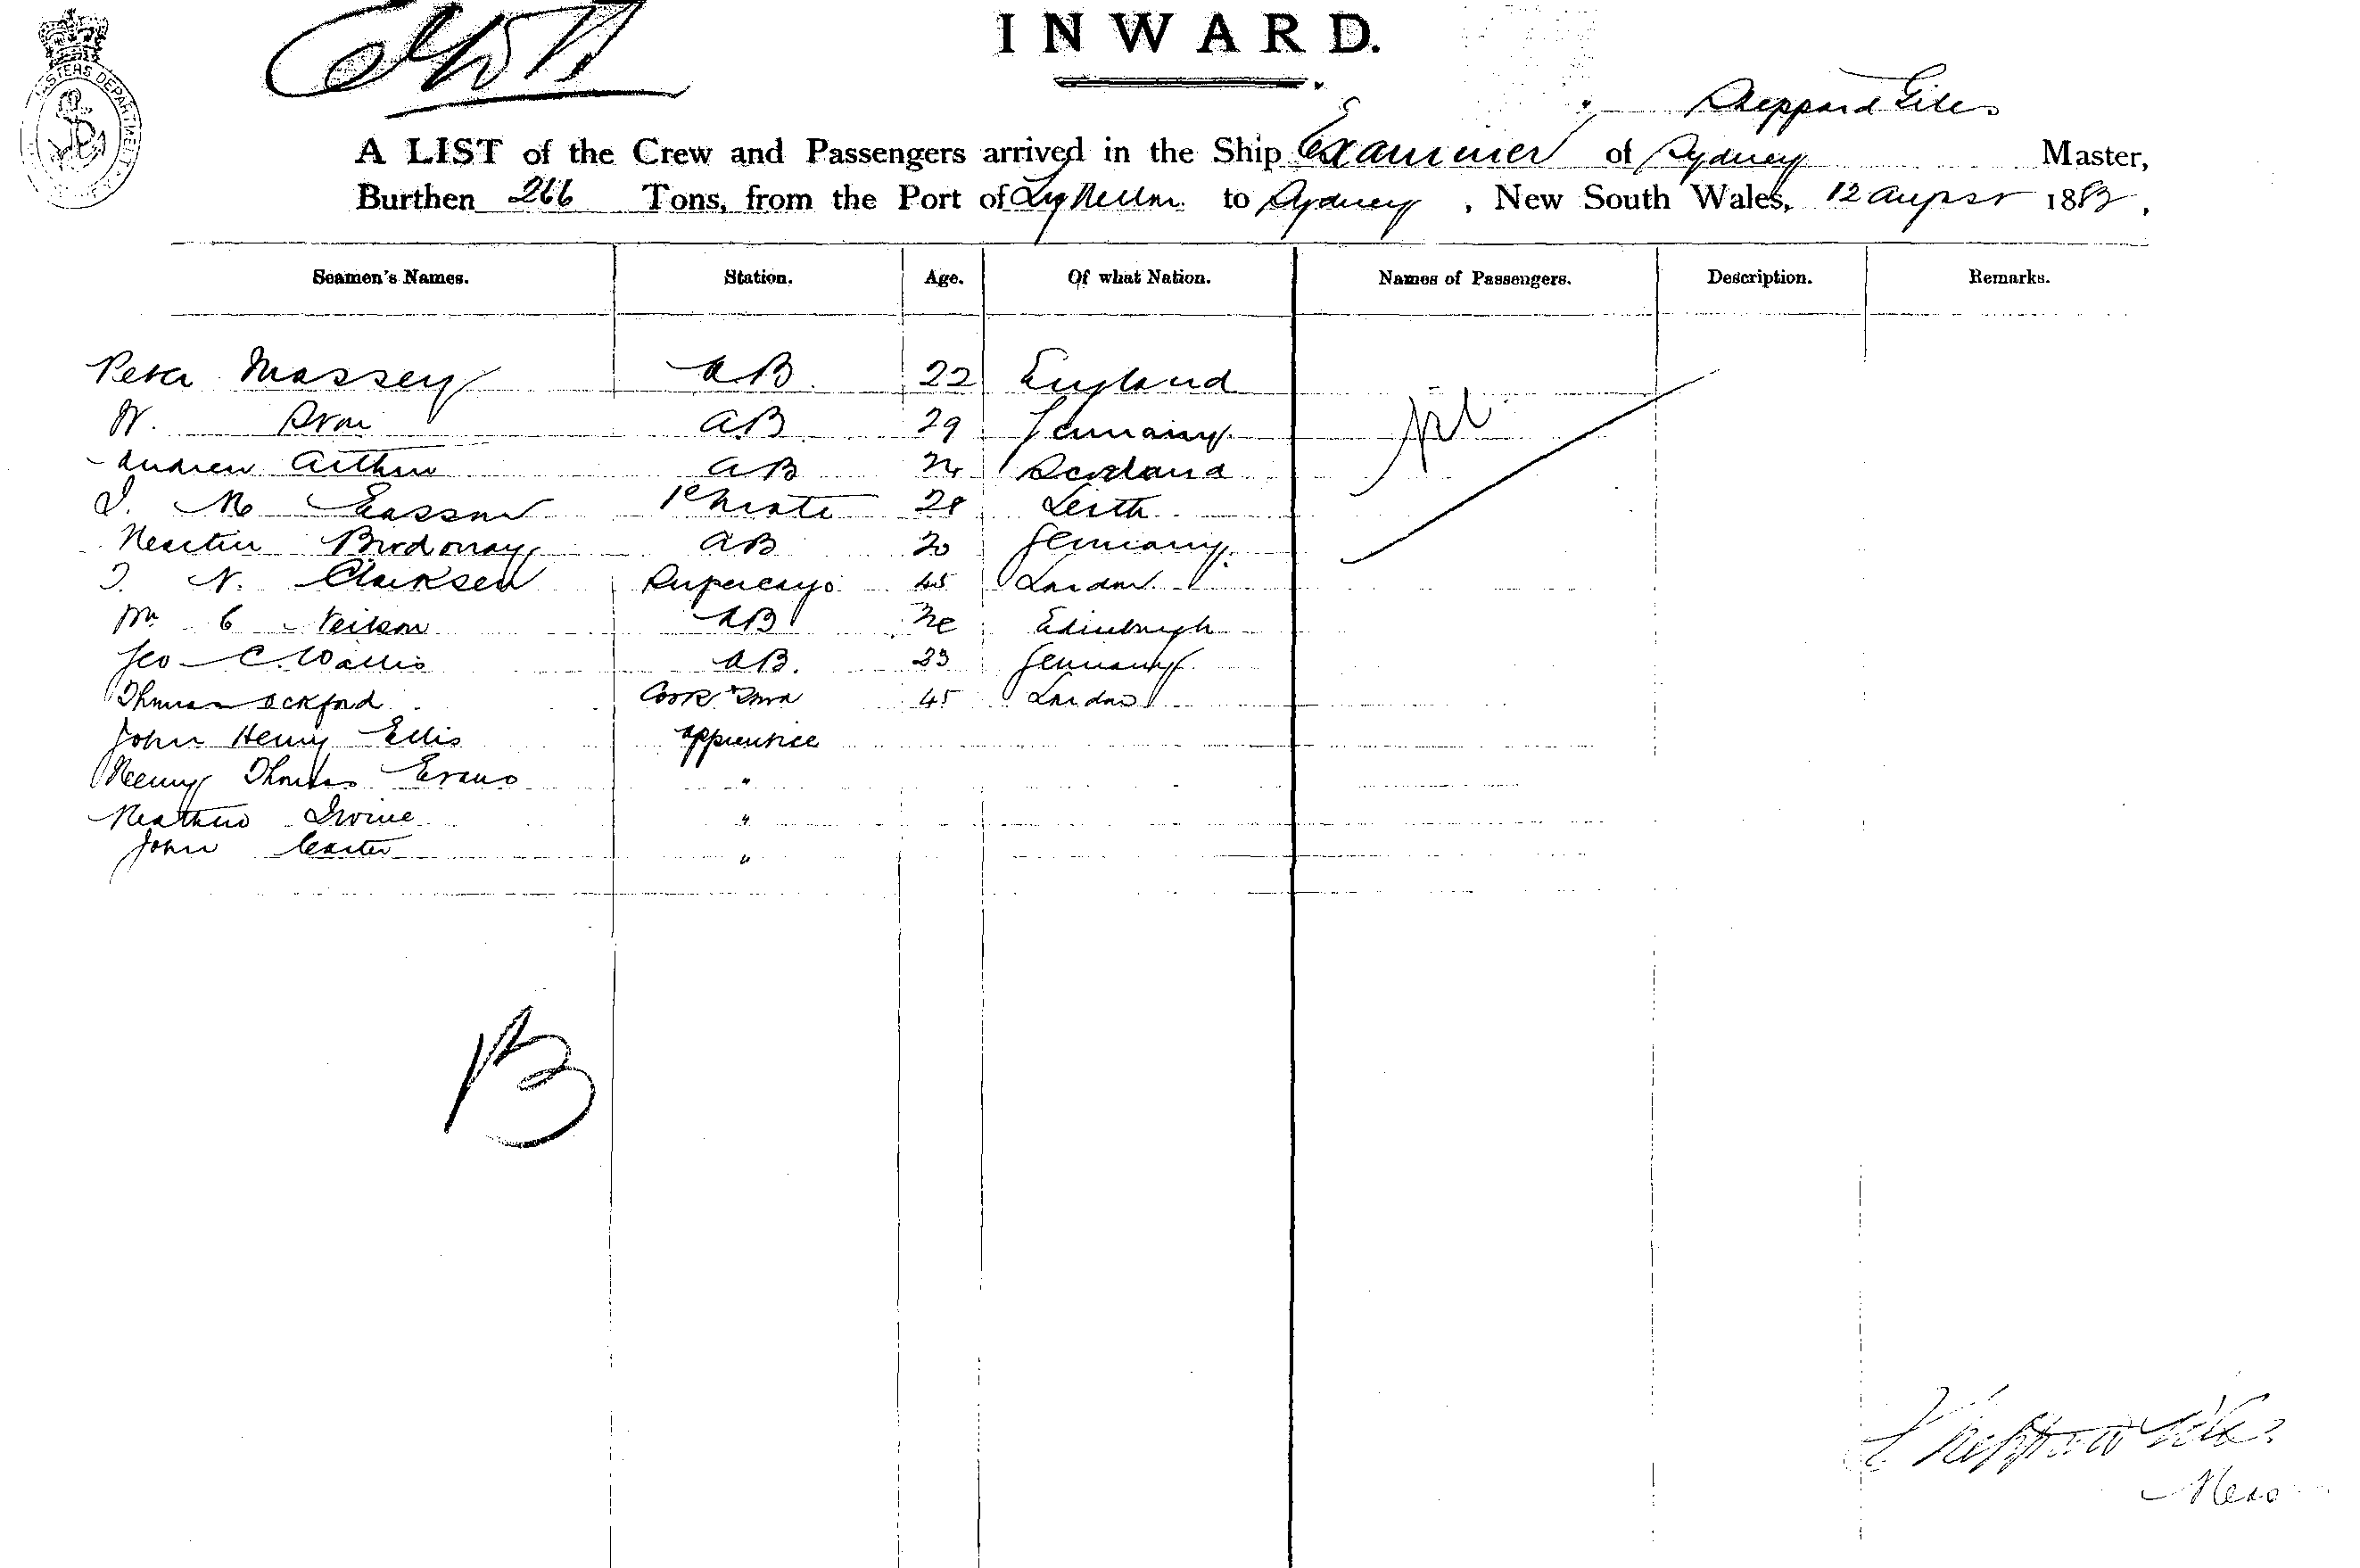 INWARD.
Sheppard Giles
A LIST of the Crew and Passengers arrived in the Ship Examiner of Sydney Master,
Burthen 266 Tons, from the Port of to Sydney, New South Wales, 12 August 1883,
Seamen's Names. Station. Age. Of what Nation. Names of Passengers. Description. Remarks.
Peter Massey AB 22 England Nil
W. AB 29 Germany
Andrew Arthur AB Scotland
Easson 1st Mate 28 Leith
Martin AB 20 Germany
N. Clarksen Supercargo 45 London
Wm Neilson AB Edinburgh
Geo C. Wallis AB. 23 Germany
Thomas Ockford Cook 45 London
John Henry Ellis apprentice
Henry Thomas Evans "
Matthew Irvine "
John Carter "
B
Sheppard Giles